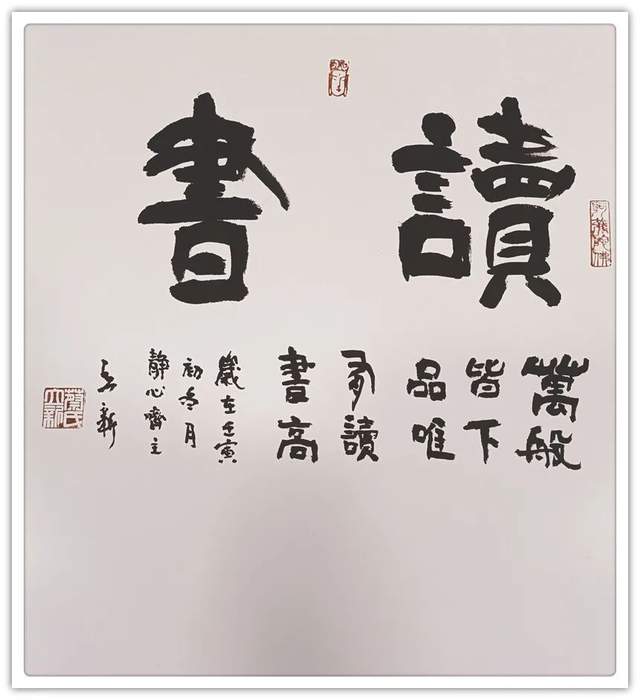 讀書
萬般
皆下
品唯
有讀
書高
歲在壬寅
初冬月
静心齋主
新